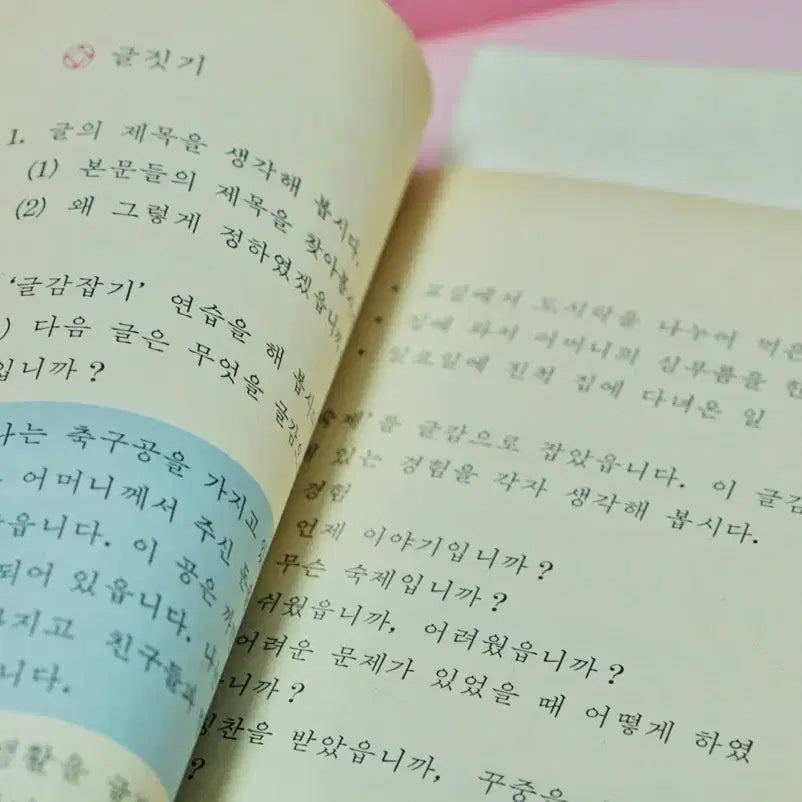 글짓기
1. 글의 제목을 생각해 봅시다.
(1) 본문들의 제목을 찾아봅시
(2) 왜 그렇게 정하였겠읍니까
'글감잡기' 연습을 해 봅시
) 다음 글은 무엇을 글감으
입니까?
나는 축구공을 가지고
어머니께서 주신 돈
읍니다. 이 공은
되어 있읍니다.
가지고 친구들과
니다.
생활을 글
• 교실에서 도시락을 나누어 먹은
• 집에 와서 어머니의 심부름을 한
• 일요일에 친척 집에 다녀온 일
숙제'를 글감으로 잡았읍니다. 이 글감
있는 경험을 각자 생각해 봅시다.
경험
언제 이야기입니까?
무슨 숙제입니까?
쉬웠읍니까, 어려웠읍니까?
어려운 문제가 있었을 때 어떻게 하였
니까?
칭찬을 받았읍니까, 꾸중을
?